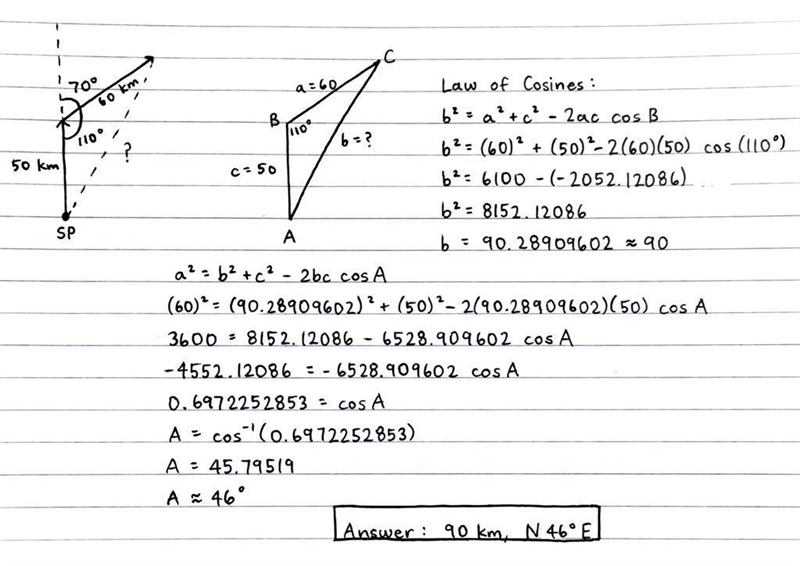 70°
60 km
110°
?
50 km
SP
C
a=60
B
110°
b=?
c=50
A
Law of Cosines:
b² = a² + c² - 2ac cos B
b² = (60)² + (50)² - 2(60)(50) cos (110°)
b² = 6100 - (-2052.12086)
b² = 8152.12086
b = 90.28909602 ≈ 90
a² = b² + c² - 2bc cos A
(60)² = (90.28909602)² + (50)² - 2(90.28909602)(50) cos A
3600 = 8152.12086 - 6528.909602 cos A
-4552.12086 = -6528.909602 cos A
0.6972252853 = cos A
A = cos⁻¹(0.6972252853)
A = 45.79519
A ≈ 46°
Answer: 90 km, N 46° E